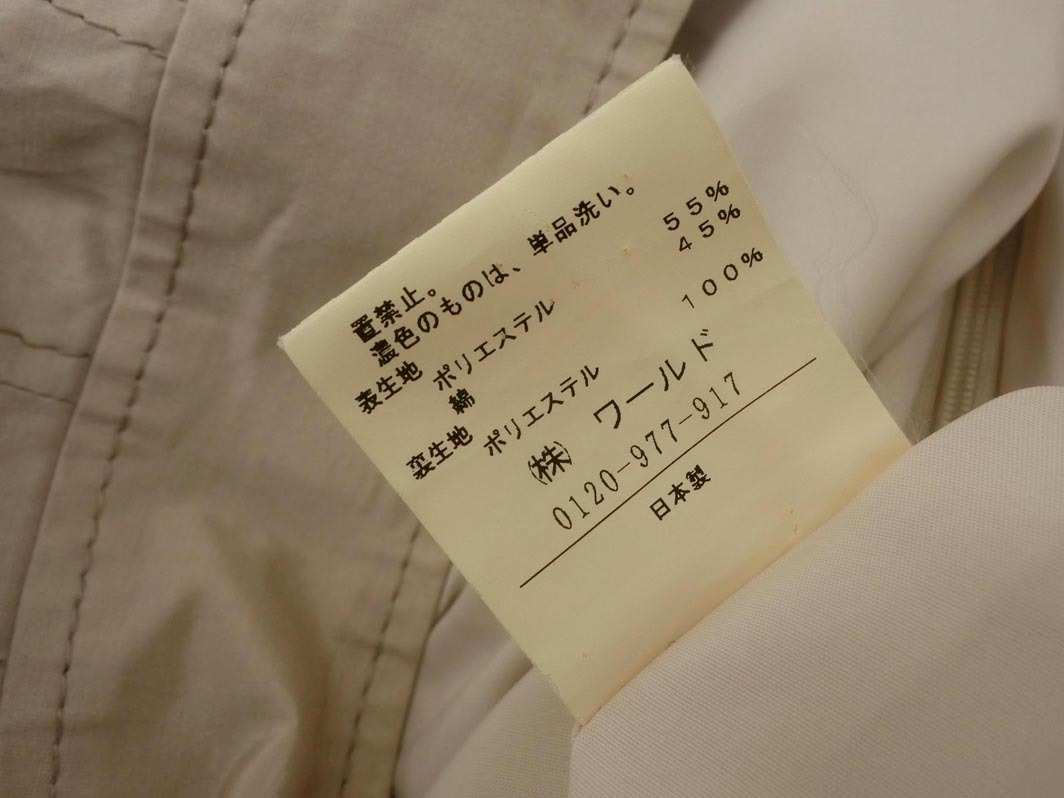 置禁止。
濃色のものは、単品洗い。
表生地 ポリエステル 55%
綿 45%
裏生地 ポリエステル 100%
(株) ワールド
0120-977-917
日本製